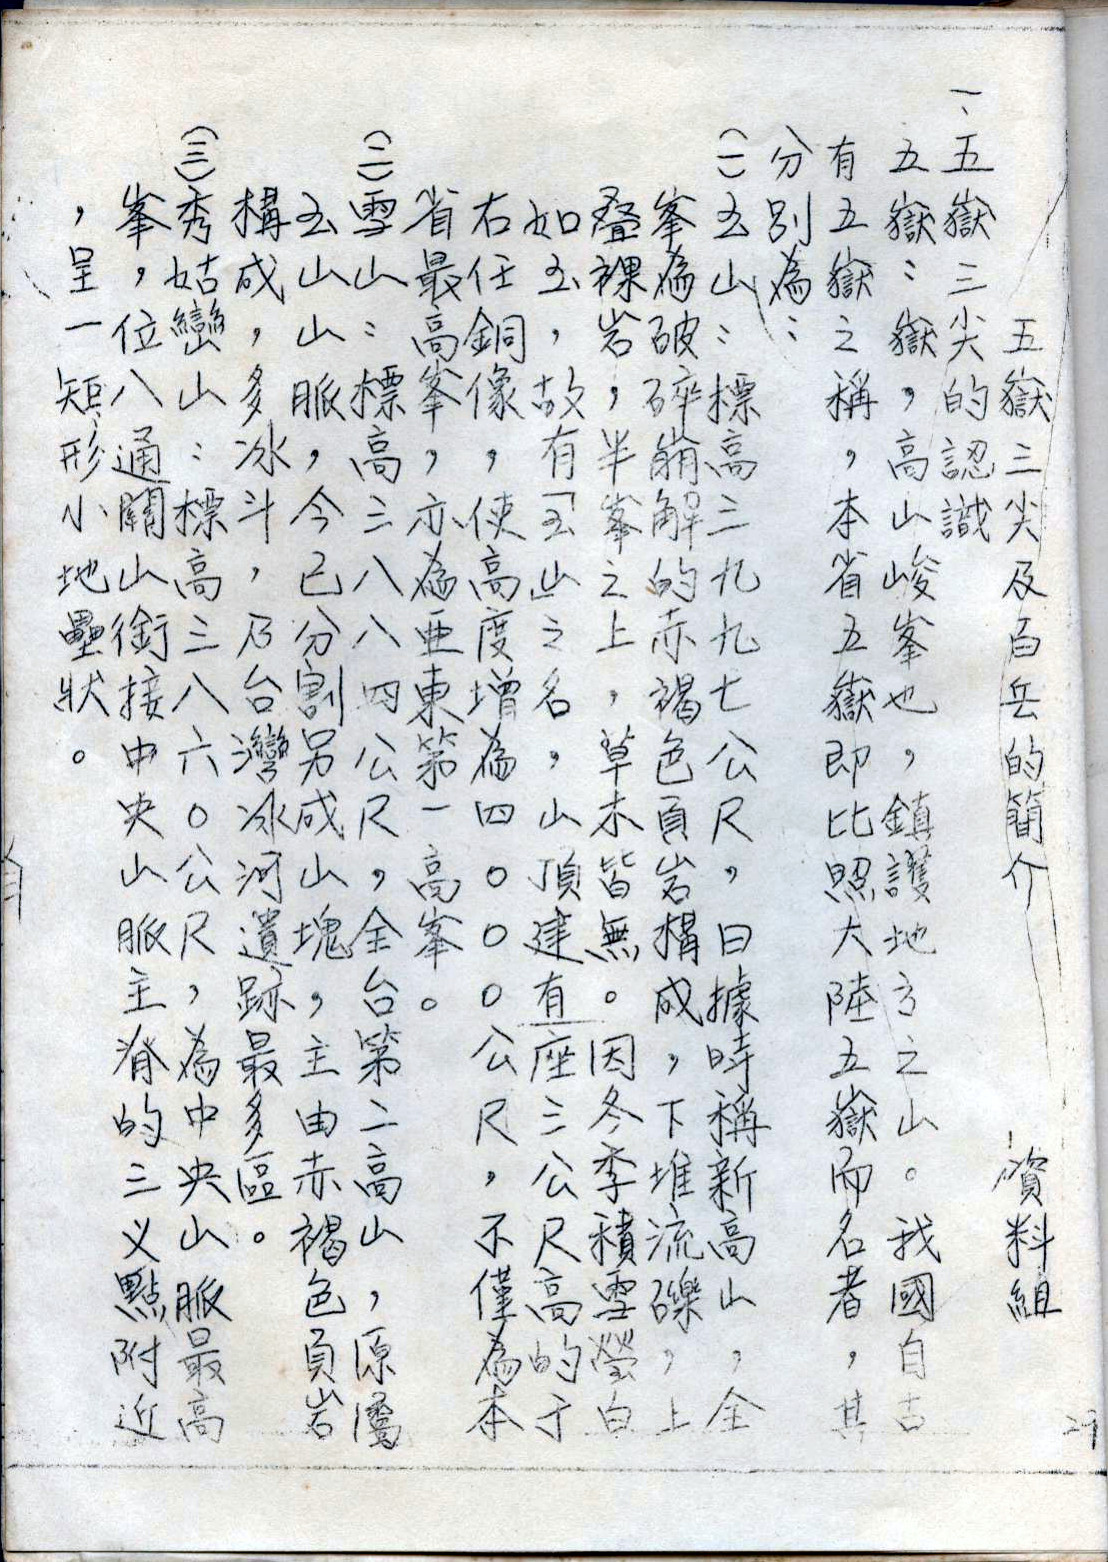 五嶽三尖及百岳的簡介　資料組
一、五嶽三尖的認識
五嶽：嶽，高山峻峯也，鎮護地方之山。我國自古
有五嶽之稱，本省五嶽即比照大陸五嶽而名者，其
分別為：
(一)玉山：標高三九九七公尺，日據時稱新高山，全
峯為破碎崩解的赤褐色頁岩構成，下堆流礫，上
疊裸岩，半峯之上，草木皆無。因冬季積雪瑩白
如玉，故有「玉山」之名，山頂建有座三公尺高的于
右任銅像，使高度增為四〇〇〇公尺，不僅為本
省最高峯，亦為亜東第一高峯。
(二)雪山：標高三八八四公尺，全台第二高山，原屬
玉山山脈，今已分割另成山塊，主由赤褐色頁岩
構成，多冰斗，乃台灣冰河遺跡最多區。
(三)秀姑巒山：標高三八六〇公尺，為中央山脈最高
峯，位八通關山銜接中央山脈主脊的三义點附近
，呈一矩形小地壘狀。
29